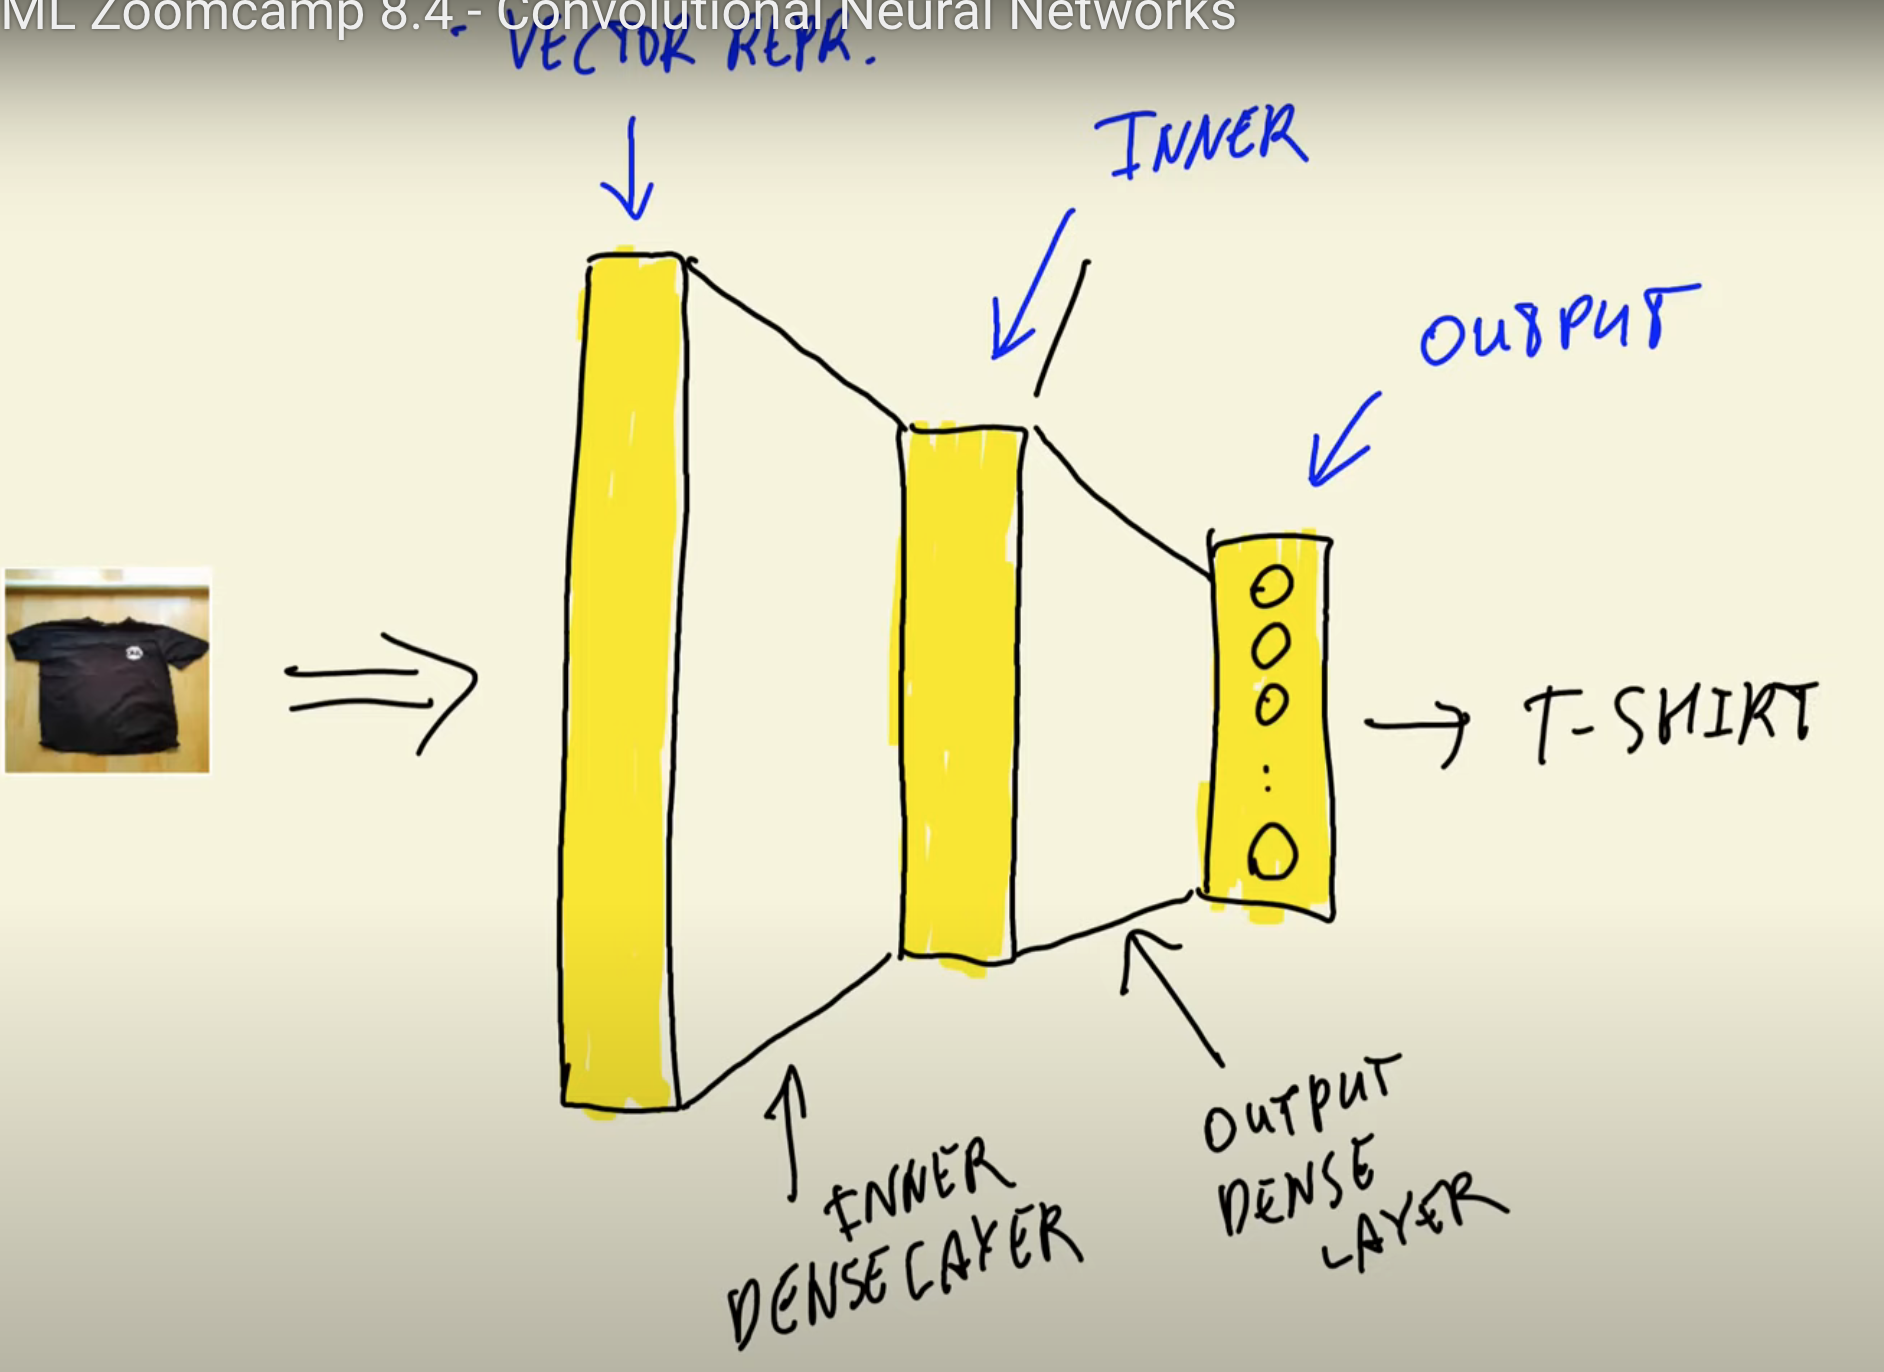 ML Zoomcamp 8.4 - Convolutional Neural Networks
- VECTOR REPR.
INNER
OUTPUT
T-SHIRT
INNER
DENSE LAYER
OUTPUT
DENSE
LAYER